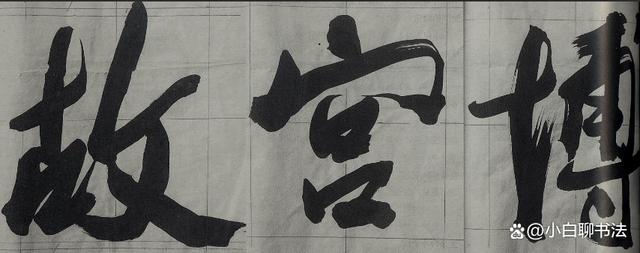 故宫博
@小白聊书法